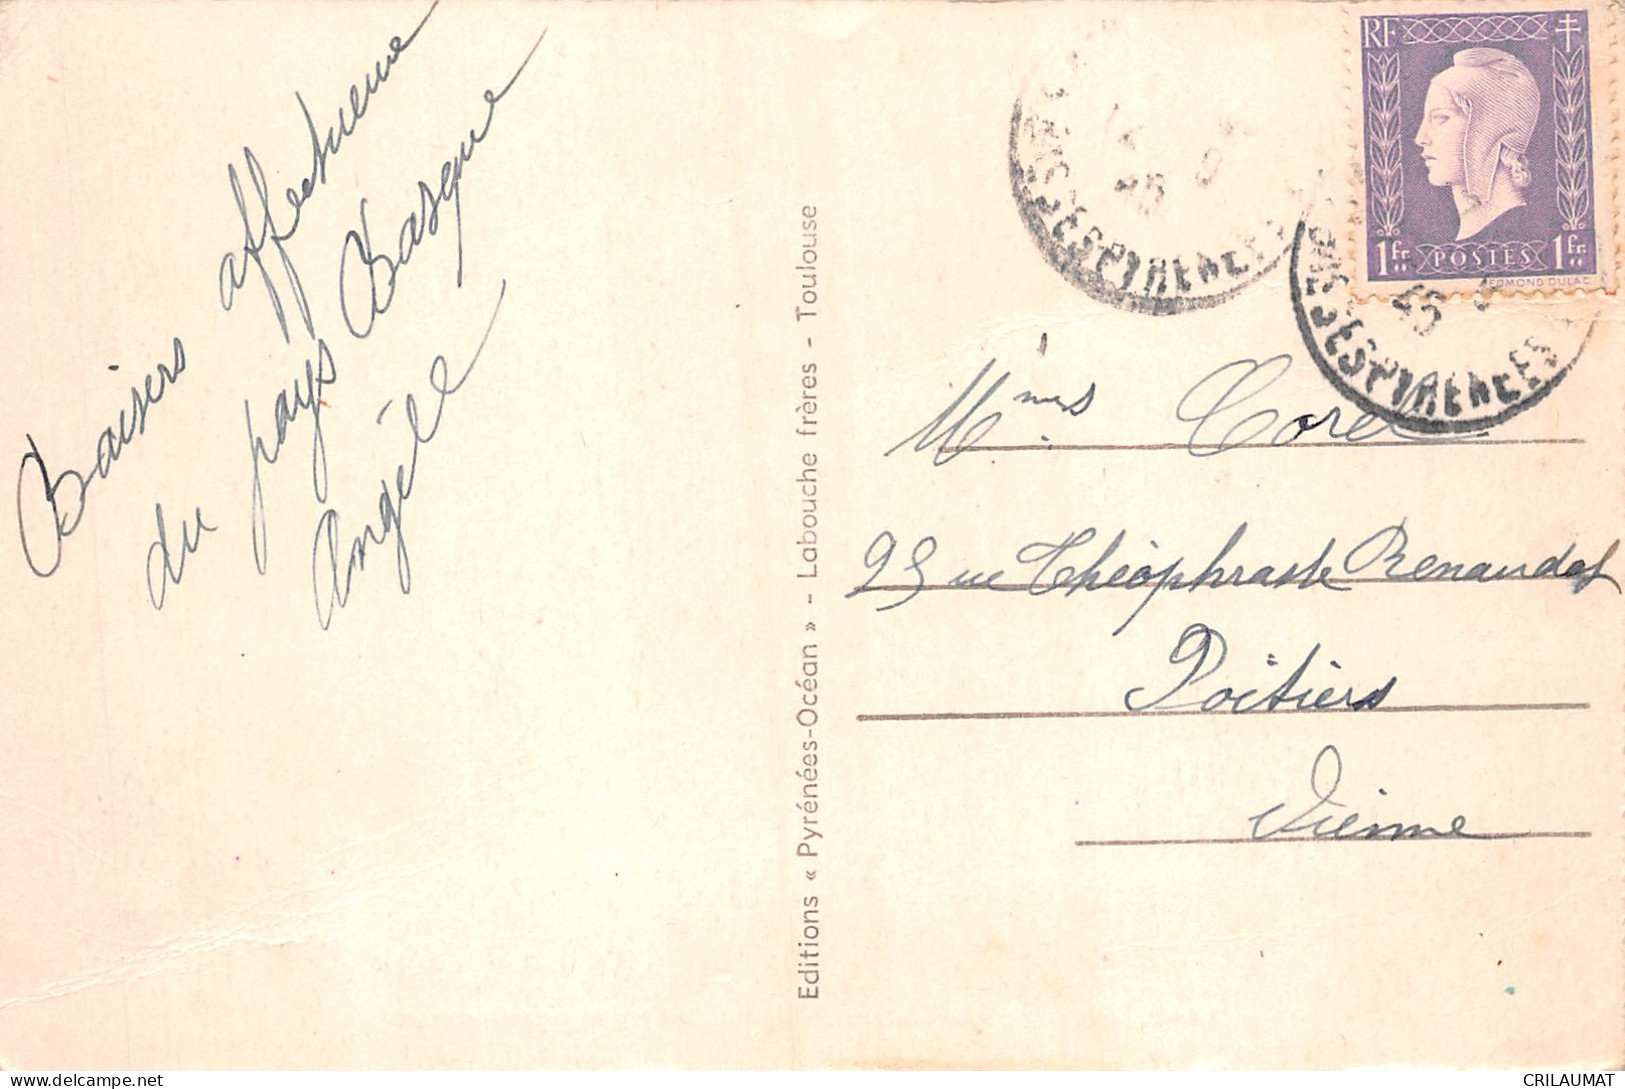 Baisers affectueux
du pays Basque
Angèle
Editions « Pyrénées-Océan » - Labouche frères - Toulouse
RF
1fr POSTES 1fr
EDMOND DULAC
45
SES PYRENEES
Mmes
Théophraste Renaudot
Poitiers
Vienne
CRILAUMAT